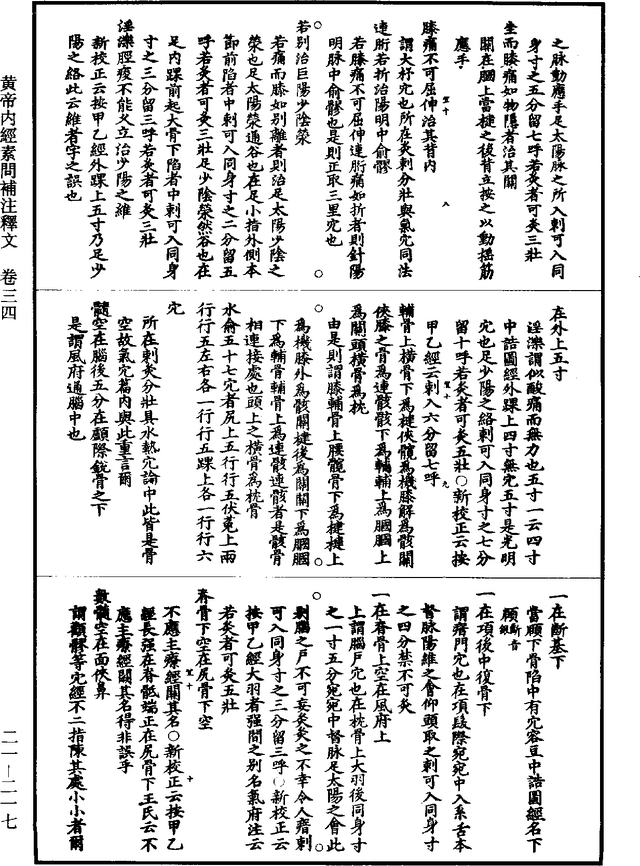 黄帝内經素問補注釋文 卷三四
二一—二一七
之脉動應手足太陽脉之所入剌可入同
身寸之五分留七呼若灸者可灸三壯
坐而膝痛如物隱者治其關
關在膕上當楗之後背立按之以動揺筋
應手
膝痛不可屈伸治其背内
謂大杼宂也所在灸剌分壯與氣宂同法
連䯒若折治陽明中俞髎
若膝痛不可屈伸連䯒痛如折者則針陽
明脉中俞髎也是則正取三里宂也
若别治巨陽少陰滎
若痛而膝如别離者則治足太陽少陰之
滎也足太陽滎通谷也在足小指外側本
節前陷者中剌可入同身寸之二分留五
呼若灸者可灸三壯足少陰滎然谷也在
足内踝前起大骨下陷者中剌可入同身
寸之三分留三呼若灸者可灸三壯
淫濼脛痠不能乆立治少陽之維
新校正云按甲乙經外踝上五寸乃足少
陽之絡此云維者字之誤也
在外上五寸
淫濼謂似酸痛而無力也五寸一云四寸
中誥圖經外踝上四寸無宂五寸是光明
宂也足少陽之絡剌可入同身寸之七分
留十呼若灸者可灸五壯○新校正云按
甲乙經云剌入六分留七呼
輔骨上横骨下爲楗俠髖爲機膝解爲骸關
俠膝之骨爲連骸骸下爲輔輔上爲膕膕上
爲關頭横骨爲枕
由是則謂膝輔骨上腰髖骨下爲楗楗上
爲機膝外爲骸關楗後爲關關下爲膕膕
下爲輔骨輔骨上爲連骸連骸者是骸骨
相連接處也頭上之横骨爲枕骨
水俞五十七宂者尻上五行行五伏菟上兩
行行五左右各一行行五踝上各一行行六
宂
所在剌灸分壯具水熱宂論中此皆是骨
空故氣宂篇内與此重言爾
髓空在腦後五分在顱際銳骨之下
是謂風府通腦中也
一在齗基下
當頤下骨陷中有宂容豆中誥圖經名下
頤
一在項後中復骨下
謂瘖門宂也在項髮際宛宛中入系舌本
督脉陽維之會仰頭取之剌可入同身寸
之四分禁不可灸
一在脊骨上空在風府上
上謂腦户宂也在枕骨上大羽後同身寸
之一寸五分宛宛中督脉足太陽之會此
剥腦之户不可妄灸灸之不幸令人瘖剌
可入同身寸之三分留三呼○新校正云
按甲乙經大羽者强間之别名氣府注云
若灸者可灸五壯
脊骨下空在尻骨下空
不應主療經闕其名○新校正云按甲乙
經長强在脊骶端正在尻骨下王氏云不
應主療經闕其名得非誤乎
數髓空在面俠鼻
謂顴髎等宂經不一指陳其處小小者爾